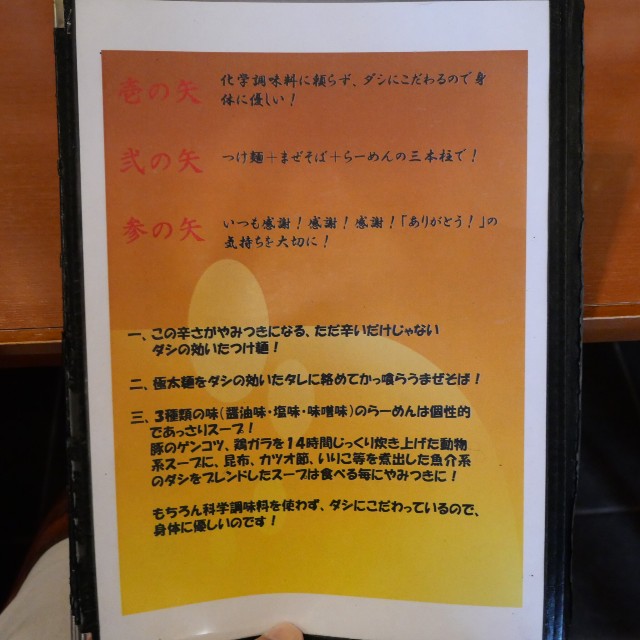 壱の矢 化学調味料に頼らず、ダシにこだわるので身
体に優しい！
弐の矢 つけ麺＋まぜそば＋らーめんの三本柱で！
参の矢 いつも感謝！感謝！感謝！「ありがとう！」の
気持ちを大切に！
一、この辛さがやみつきになる、ただ辛いだけじゃない
ダシの効いたつけ麺！
二、極太麺をダシの効いたタレに絡めてかっ喰らうまぜそば！
三、３種類の味（醤油味・塩味・味噌味）のらーめんは個性的
であっさりスープ！
豚のゲンコツ、鶏ガラを１４時間じっくり炊き上げた動物
系スープに、昆布、カツオ節、いりこ等を煮出した魚介系
のダシをブレンドしたスープは食べる毎にやみつきに！
もちろん科学調味料を使わず、ダシにこだわっているので、
身体に優しいのです！